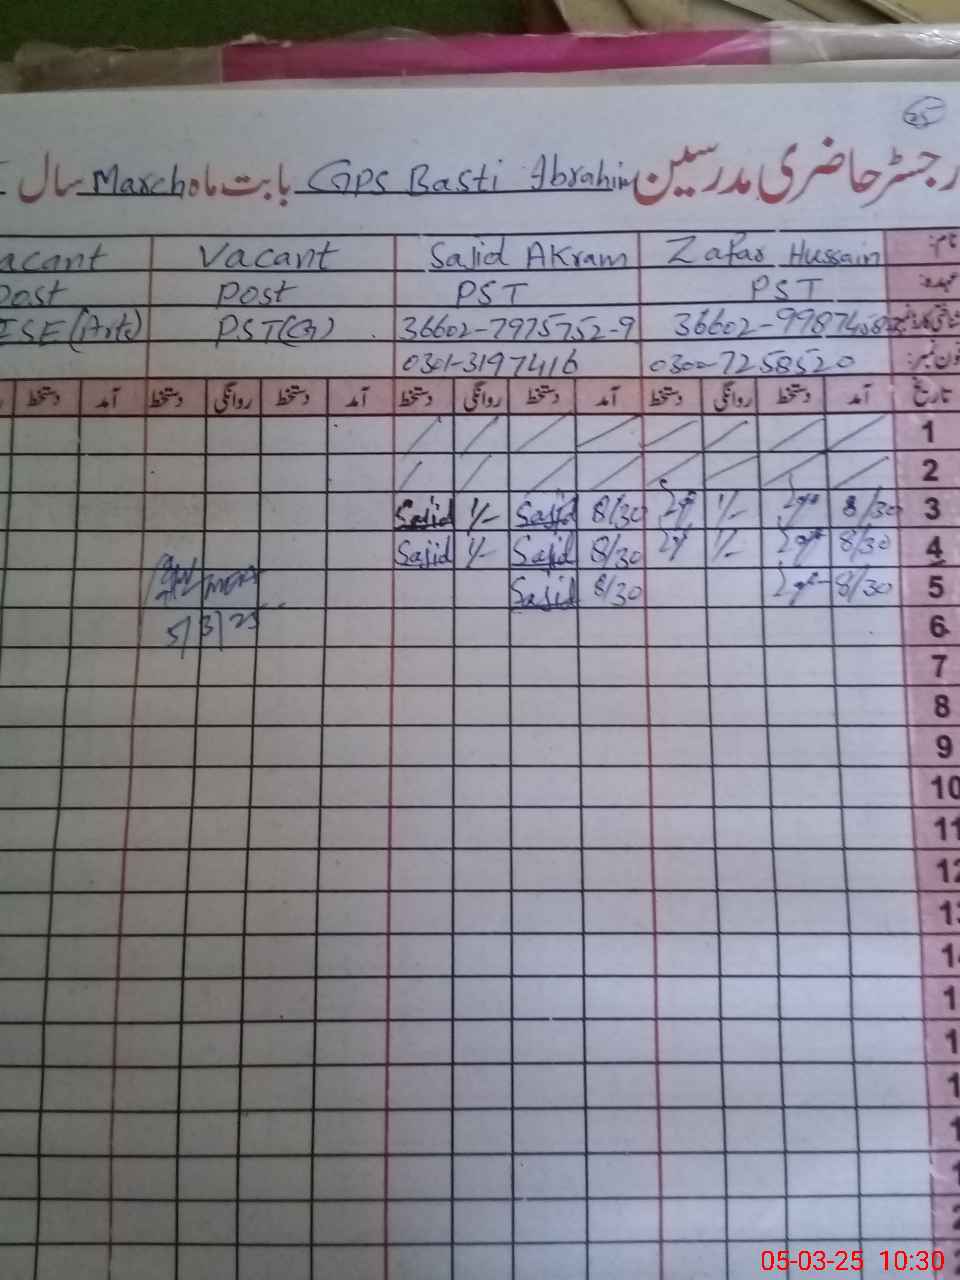 25
رجسٹر حاضری مدرسین GPS Basti Ibrahim بابت ماہ March سال
نام: Zafar Hussain Sajid AKram Vacant acant
عہدہ: PST PST Post Post
36602-7975752-9 PST(G) ESE(Arts)
فون نمبر: 0300-7258520 0301-3197416
تاریخ آمد دستخط روانگی دستخط آمد دستخط روانگی دستخط آمد دستخط روانگی دستخط آمد دستخط
1
2
3 8/30 1/- 8/30 Sajid 1/- Sajid
4 8/30 1/- 8/30 Sajid 1/- Sajid
5 8/30 8/30 Sajid
6 5/3/25
7
8
9
10
11
12
05-03-25 10:30